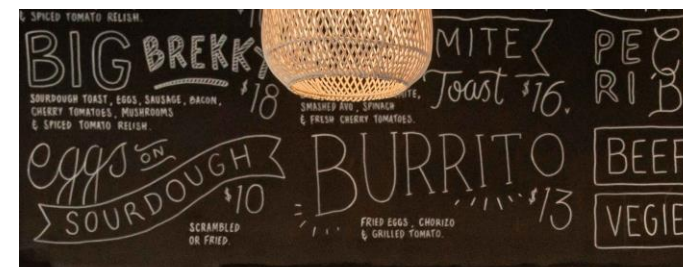 & SPICED TOMATO RELISH.
BIG BREKKY
$18
SOURDOUGH TOAST, EGGS, SAUSAGE, BACON,
CHERRY TOMATOES, MUSHROOMS
& SPICED TOMATO RELISH.
eggs ON
SOURDOUGH
$10
SCRAMBLED
OR FRIED.
MITE
Toast $16.
SMASHED AVO, SPINACH
& FRESH CHERRY TOMATOES.
BURRITO
$13
FRIED EGGS, CHORIZO
& GRILLED TOMATO.
PE
RI
BEEF
VEGIE